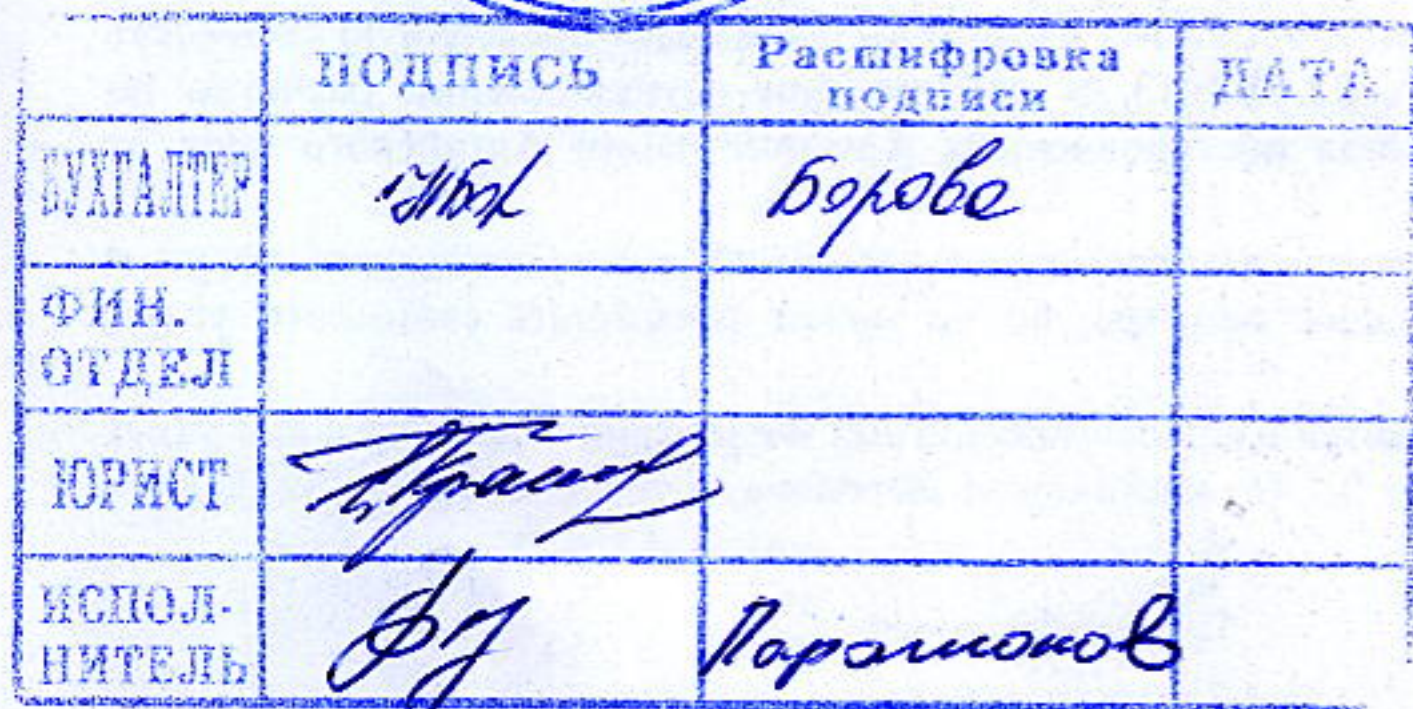 ПОДПИСЬ Расшифровка подписи ДАТА
БУХГАЛТЕР Борова
ФИН. ОТДЕЛ
ЮРИСТ
ИСПОЛ-
НИТЕЛЬ Парамонов